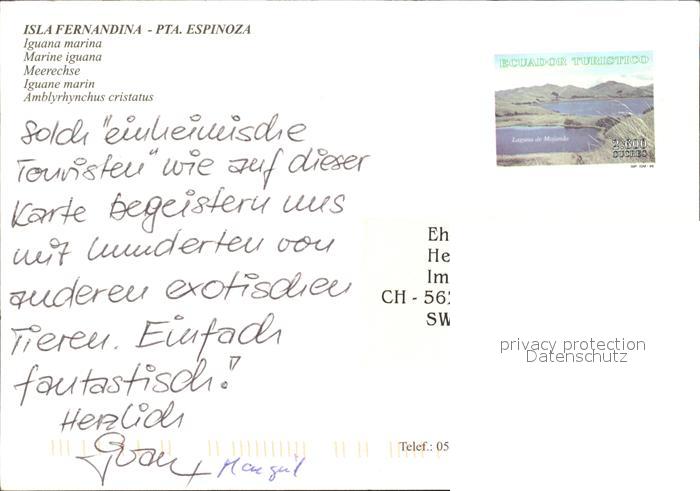 ISLA FERNANDINA - PTA. ESPINOZA
Iguana marina
Marine iguana
Meerechse
Iguane marin
Amblyrhynchus cristatus
ECUADOR TURISTICO
Laguna de Mojanda
2.600
SUCRES
Solch "einheimische
Touristen" wie auf dieser
Karte begeistern uns
mit hunderten von
anderen exotischen
Tieren. Einfach
fantastisch!
Herzlich
Eh
He
Im
CH - 562
SW
privacy protection
Datenschutz
Telef.: 05